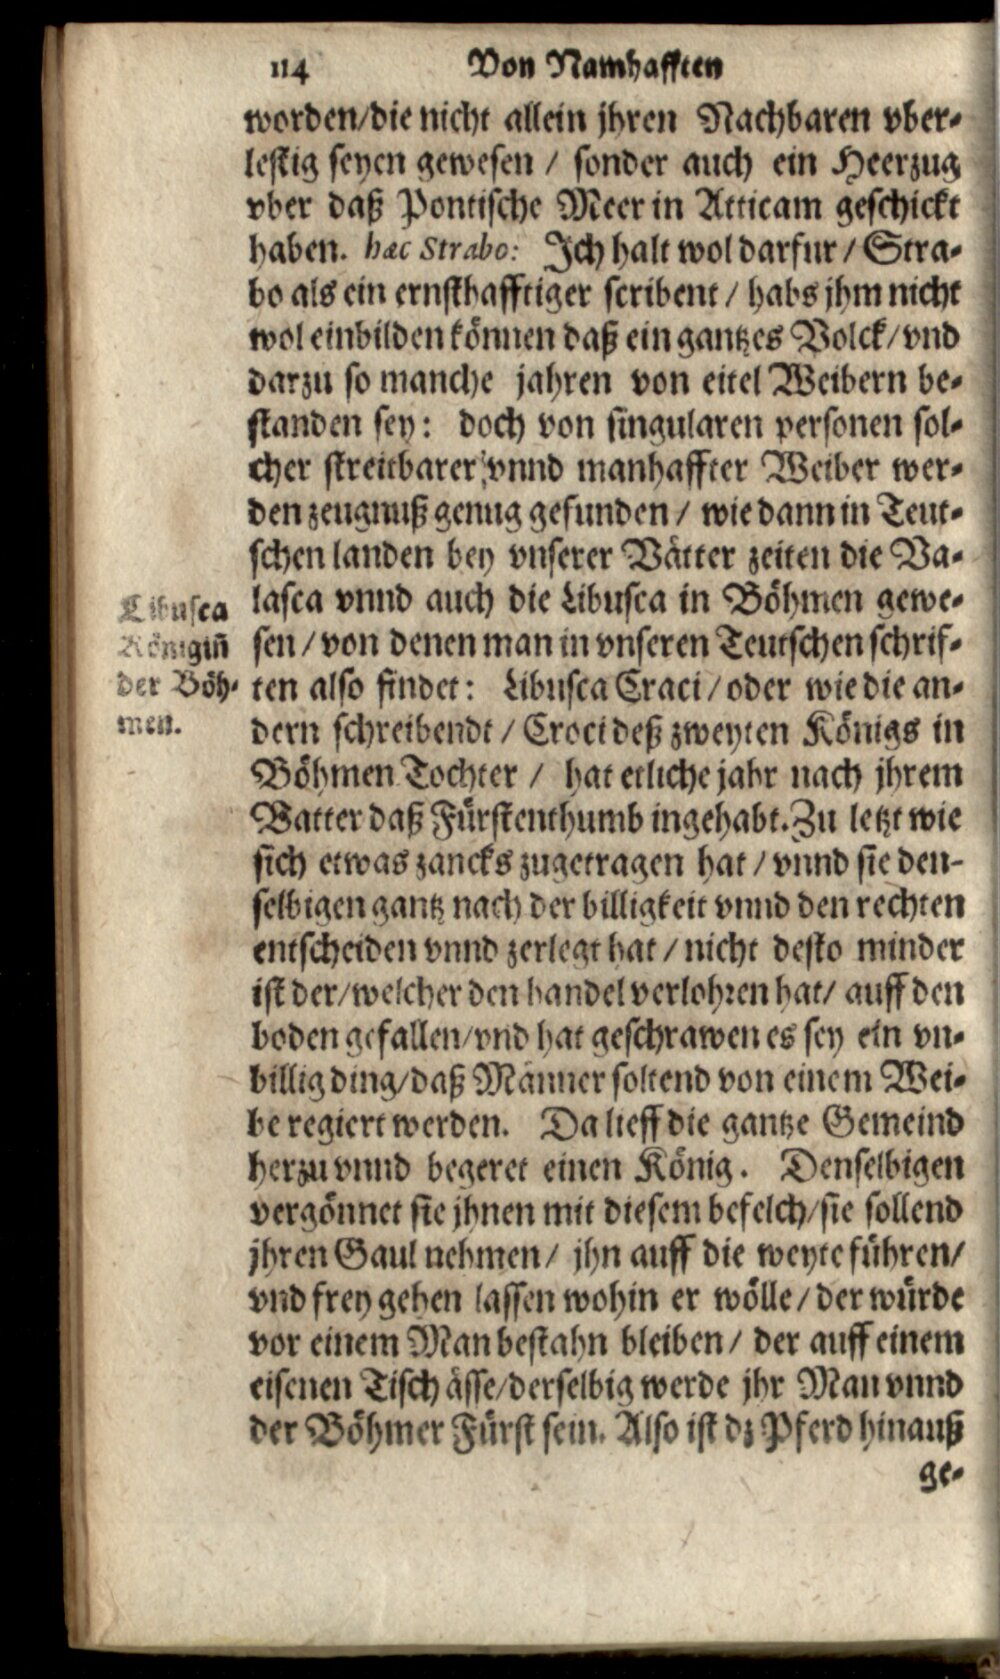 114 Von Namhafften
worden/die nicht allein jhren Nachbaren vber-
lestig seyen gewesen / sonder auch ein Heerzug
vber daß Pontische Meer in Atticam geschickt
haben. hæc Strabo: Ich halt wol darfur / Stra-
bo als ein ernsthafftiger scribent / habs jhm nicht
wol einbilden können daß ein gantzes Volck/vnd
darzu so manche jahren von eitel Weibern be-
standen sey: doch von singularen personen sol-
cher streitbarer vnnd manhaffter Weiber wer-
den zeugnuß genug gefunden / wie dann in Teut-
schen landen bey vnserer Vätter zeiten die Va-
lasca vnnd auch die Libusca in Böhmen gewe-
sen / von denen man in vnseren Teutschen schrif-
ten also findet: Libusca Craci / oder wie die an-
dern schreibendt / Croci deß zweyten Königs in
Böhmen Tochter / hat etliche jahr nach jhrem
Vatter daß Fürstenthumb ingehabt. Zu letzt wie
sich etwas zancks zugetragen hat / vnnd sie den-
selbigen gantz nach der billigkeit vnnd den rechten
entscheiden vnnd zerlegt hat / nicht desto minder
ist der/welcher den handel verlohren hat/ auff den
boden gefallen/vnd hat geschrawen es sey ein vn-
billig ding/daß Männer soltend von einem Wei-
be regiert werden. Da lieff die gantze Gemeind
herzu vnnd begeret einen König. Denselbigen
vergönnet sie jhnen mit diesem befelch/sie sollend
jhren Gaul nehmen / jhn auff die weyte führen/
vnd frey gehen lassen wohin er wölle / der würde
vor einem Man bestahn bleiben / der auff einem
eisenen Tisch ässe/derselbig werde jhr Man vnnd
der Böhmer Fürst sein. Also ist dz Pferd hinauß
ge-
Libusca
Königiñ
der Böh-
men.